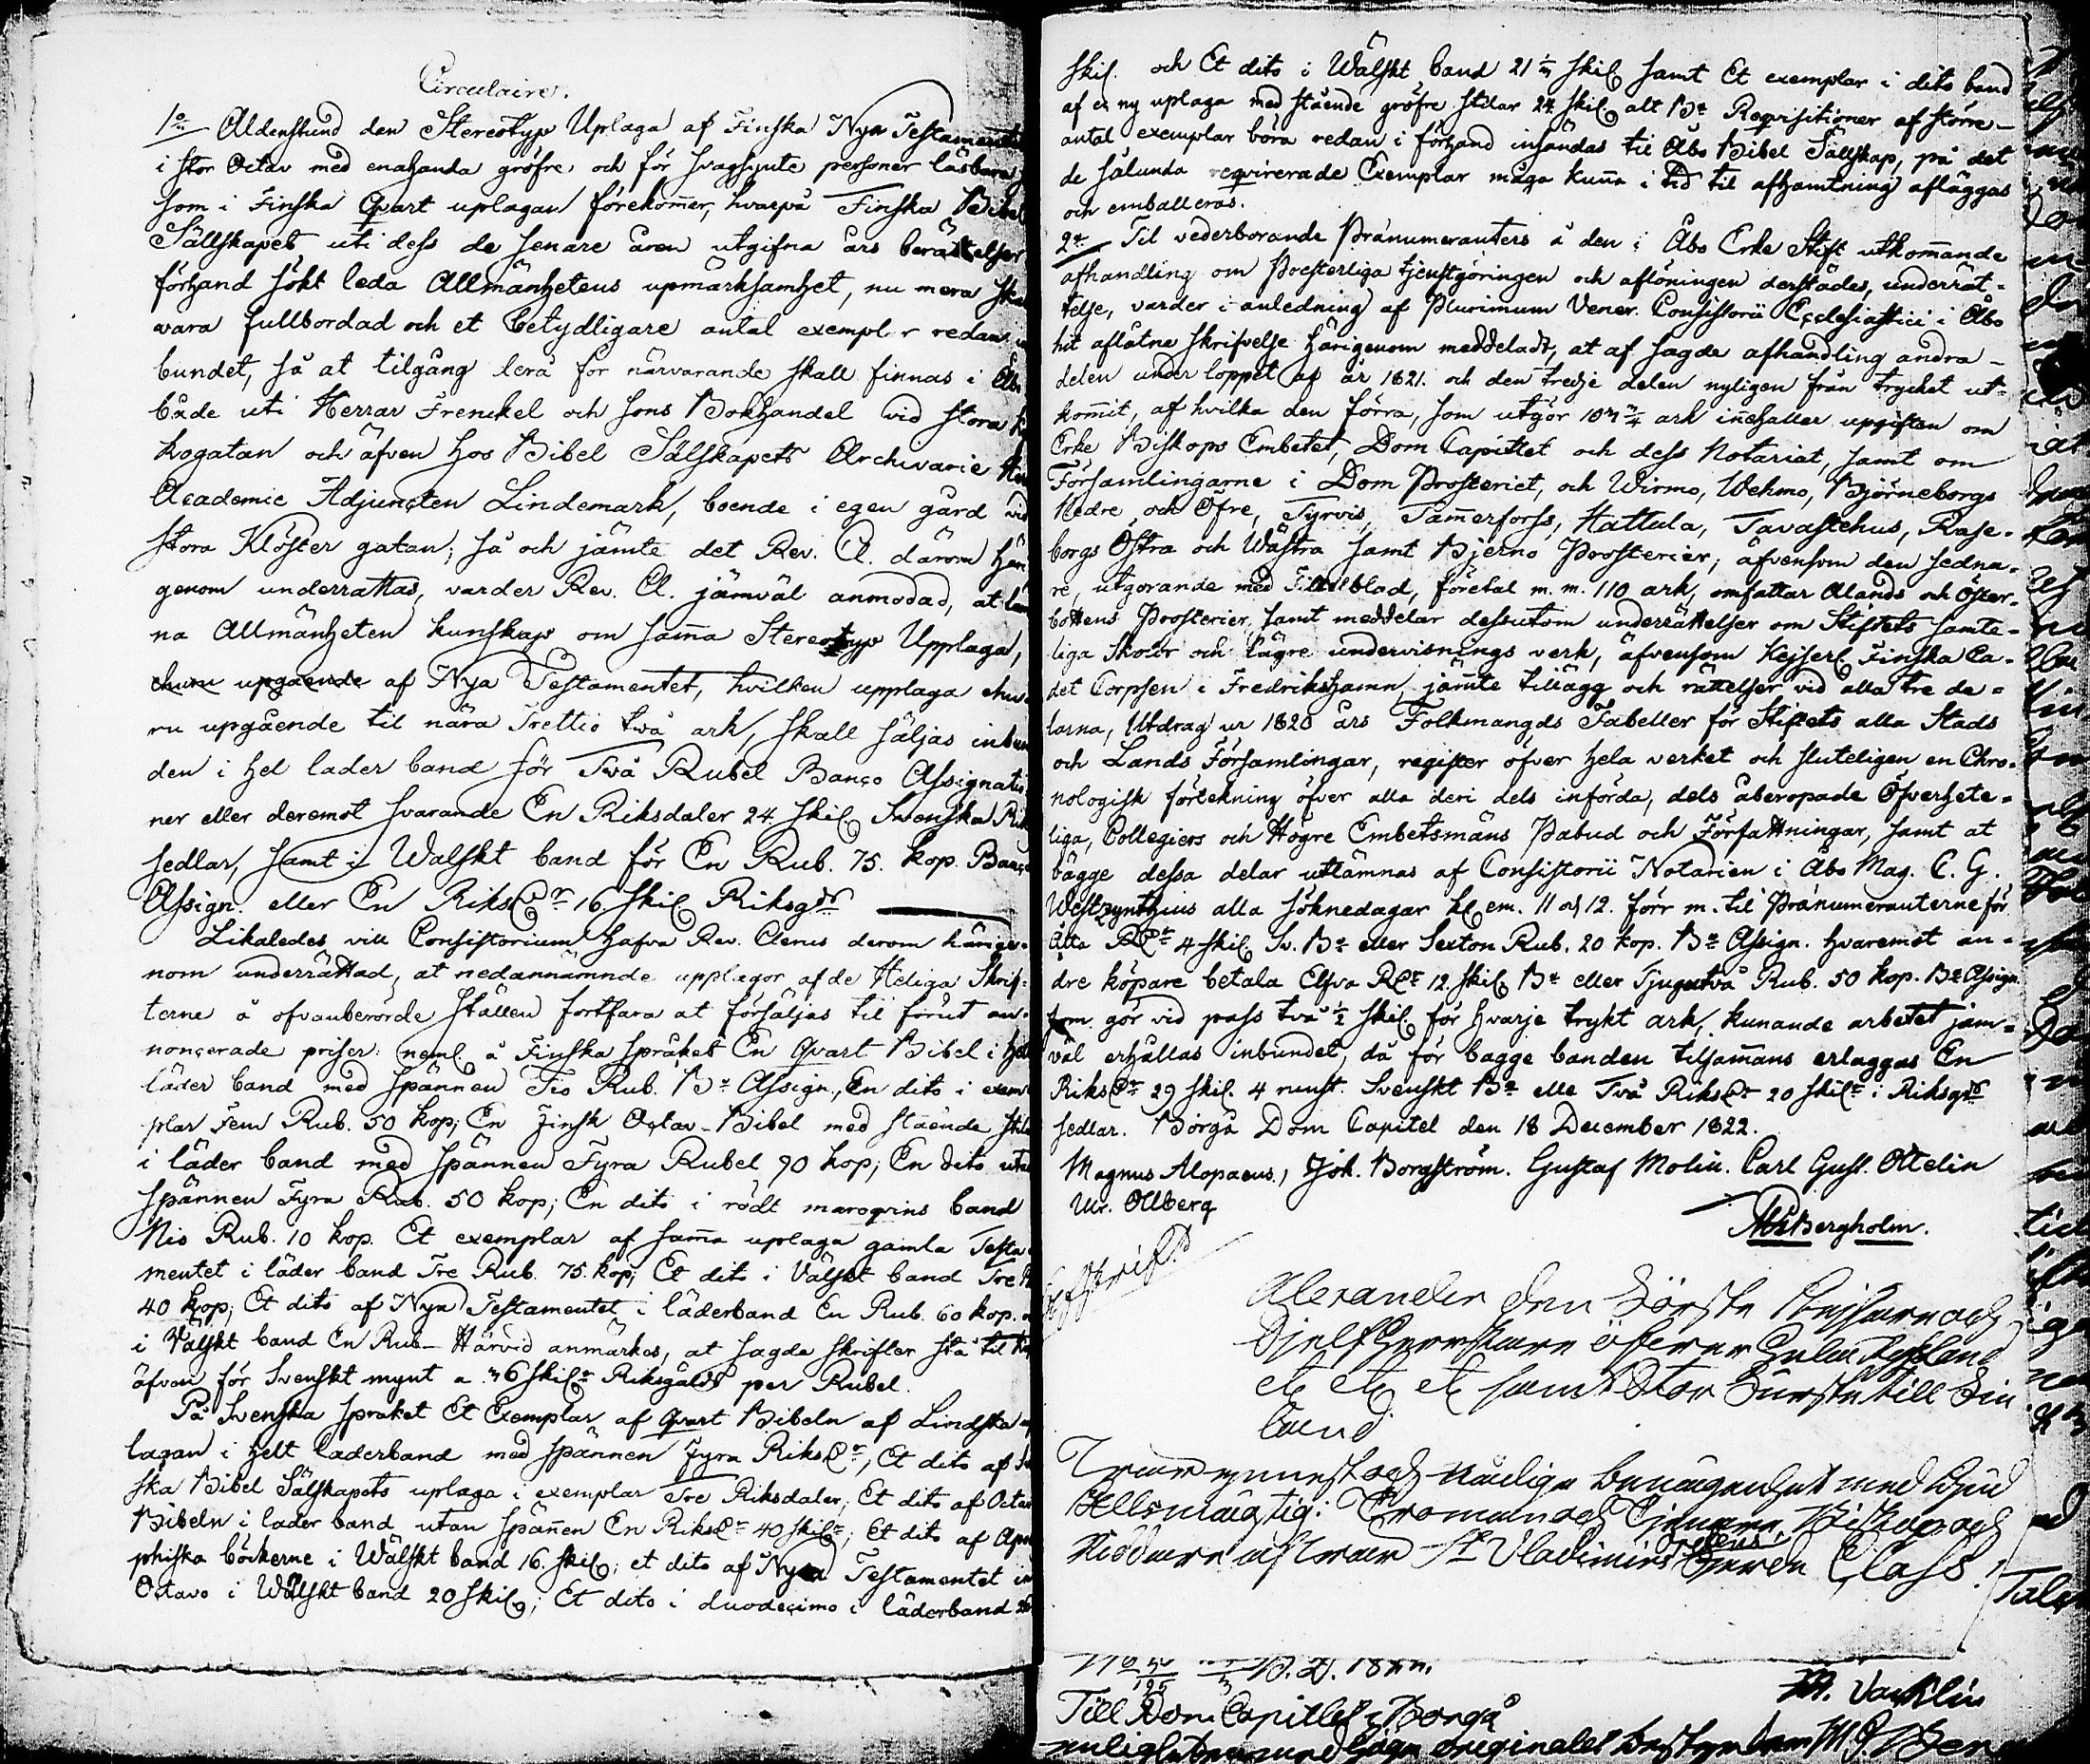 Circulaire.
1o Aldenstund den Stereotyp Uplaga af Finska Nya Testamentet
i stor Octav med enahanda gröfre och för svagsynte personer läsbara
som i Finska Qvart uplagan förekomer, hvarpå Finska Bibel
Sällskapet uti dess de senare åren utgifna års berättelser
förhand sökt leda Allmänhetens upmärksamhet, nu mera skal
vara fullbordad och et betydligare antal exempl r redan in
bundet, så at tilgång lerä for närvarande skall finnas i Åbo
både uti Herrar Frenckel och Sons Bokhandel vid stora
kogatan och äfven hos Bibel Sälskapets Archivarie
Academie Adjuncten Lindemark, boende i egen gård vid
stora Klöster gatan; så och jämte det Rev. Cl. därom här
genom underrattas, varder Rev. Cl. jämväl anmodad, at läm
na Allmänheten kunskap om sama Stereotyp Upplaga,
churu upgående af Nya Testamentet, hvilken upplaga ehu
ru upgående til nära Trettio två ark, skall säljas inbun
den i hel lader band för Två Rubel Banco Assignatio
ner eller deremot svarande En Riksdaler 24 skil Svenska Rik
sedlar, samt i Walskt band för En Rub. 75. kop. Banco
Assign. eller En Riksdr 16 skil Riksgds
Likaledes vill Consistorium hafva Rev. Clerus derom härige-
nom underrättad, at nedannämnde upplagor af de Heliga Skrif-
terne å ofvanberörde ställen fortfara at försäljas til förut an-
noncerade priser: neml. å Finska språket En Qvart Bibel i helt
läder band med spännen Tio Rub. Bo Assign., En dito i exem
plar Fem Rub. 50 kop; En Finsk Octav-Bibel med stående stilar
i läder band med spännen Fyra Rubel 90 kop; En dito utan
spännen Fyra Rub. 50 kop; En dito i rödt maroqvins band
Nio Rub. 10 kop. Et exemplar af sama uplaga gamla Testa
mentet i läder band Tre Rub. 75. kop; Et dito i Välskt band Tre
40 kop; Et dito af Nya Testamentet i läderband En Rub. 60 kop.
i Välskt band En Rub- Härvid anmärkes, at sagde skrifter stå til
äfven för Svenskt mynt a 36 skilr Riksgälds per Rubel.
På Svenska språket Et Exemplar af Qvart Bibeln af Lindska
lagan i helt laderband med spännen Fyra Riksdr, Et dito af
ska Bibel Sälskapets uplaga i exemplar Tre Riksdaler; Et dito af Octav
Bibeln i lader band utan spänen En Riksdr 40 skilr; Et dito af Apo
phiska böckerne i Wälskt band 16. skil; et dito af Nya Testamentet in
Octavo i Wälskt band 20 skil; Et dito i duodecimo i läderband
skil. och Et dito i Wälskt band 21 1/3 skil samt Et exemplar i dito band
af en ny uplaga med stående gröfre stilar 24 skil alt Bo Reqvisitioner af större
antal exemplar böra redan i förhand insändas til Åbo Bibel Sällskap, på det
de sålunda reqvirerade Exemplar måga kuna i tid til afhämtning afläggas
och emballeras.
2o Til vederborande Pränumeranters å den i Åbo Erke Stift utkomande
afhandling om Presterliga tjenstgöringen och aflöningen derstädes, underrät-
telse, varder i anledning af Plurimum Vener. Consistorii Ecclesiastici i Åbo
hit aflåtne skrifvelse härigenom meddeladt, at af sagde afhandling andra
delen under loppet af år 1821. och den tredje delen nyligen från trycket ut-
komit, af hvilka den förra, som utgör 107 3/4 ark inehaller upgiften om
Erke Biskops Embetet, Dom Capittlet och dess Notariat, samt om
Församlingarne i Dom Prosteriet, och Wirmo, Wehmo, Björneborgs
Nedre och Öfre, Tyrvis, Tamerforss, Hattula, Tavastehus, Rase-
borgs Östra och Wästra samt Bjerno Prosterier, äfvensom den sedna-
re, utgorande med Titelblad, företal m. m. 110 ark, omfattar Alands och Öster-
bottens Prosterier, samt meddelar dessutom underrättelser om Stiftets samte-
liga Skolor och lägre undervisnings verk, äfvensom Kejserl. Finska Ca-
det Corpsen i Fredrikshamn jämte tillägg och rättelser vid alla tre de-
larna, Utdrag ur 1820 års Folkmangds Tabeller för Stiftets alla Stads
och Lands Församlingar, register öfver hela verket och sluteligen en Chro-
nologisk förtekning öfver alla deri dels införda, dels åberopade Öfverhete-
liga, Collegiers och Högre Embetsmäns Påbud och Författningar, samt at
bägge dessa delar utlämnas af Consistorii Notarien i Åbo Mag. C. G.
Westzynthius alla söknedagar kl em. 11 och 12. förr m. til Pränumeranterne för
Åtta Rdr 4 skil. Sv. Bo eller Sexton Rub. 20 kop. Bo Assign. hvaremot an-
dre köpare betala Elfva Rdr 12. skil. Bo eller Tjugutvå Rub. 50 kop. Bo Assign.
som gör vid pass två 1/2 skil för hvarje trykt ark, kunande arbetet jäm-
väl erhållas inbundet, då för bagge banden tilsamans erlaggas En
Riksdr 29 skil. 4 runst. Svenskt Bo elle Två Riksdr 20 skilr i Riksgds
sedlar. Borgå Dom Capitel den 18 December 1822.
Magnus Alopaeus, Joh. Borgström. Gustaf Molin. Carl Gust. Ottelin
Ur. Ollberg
Bergholm.
Afskrift
Alexander den Förste Kejsare och
Sjelfherrskare öfwer hela Ryssland
etc etc etc samt Stor Furste till Fin
land
Wår ynnest och nådiga benägenhet med Gud
Allsmägtig: Troman och Tjenare, Biskop och
Riddare af wår St Vladimirs Ordens Class!
Till Dom Capitlet i Borgå